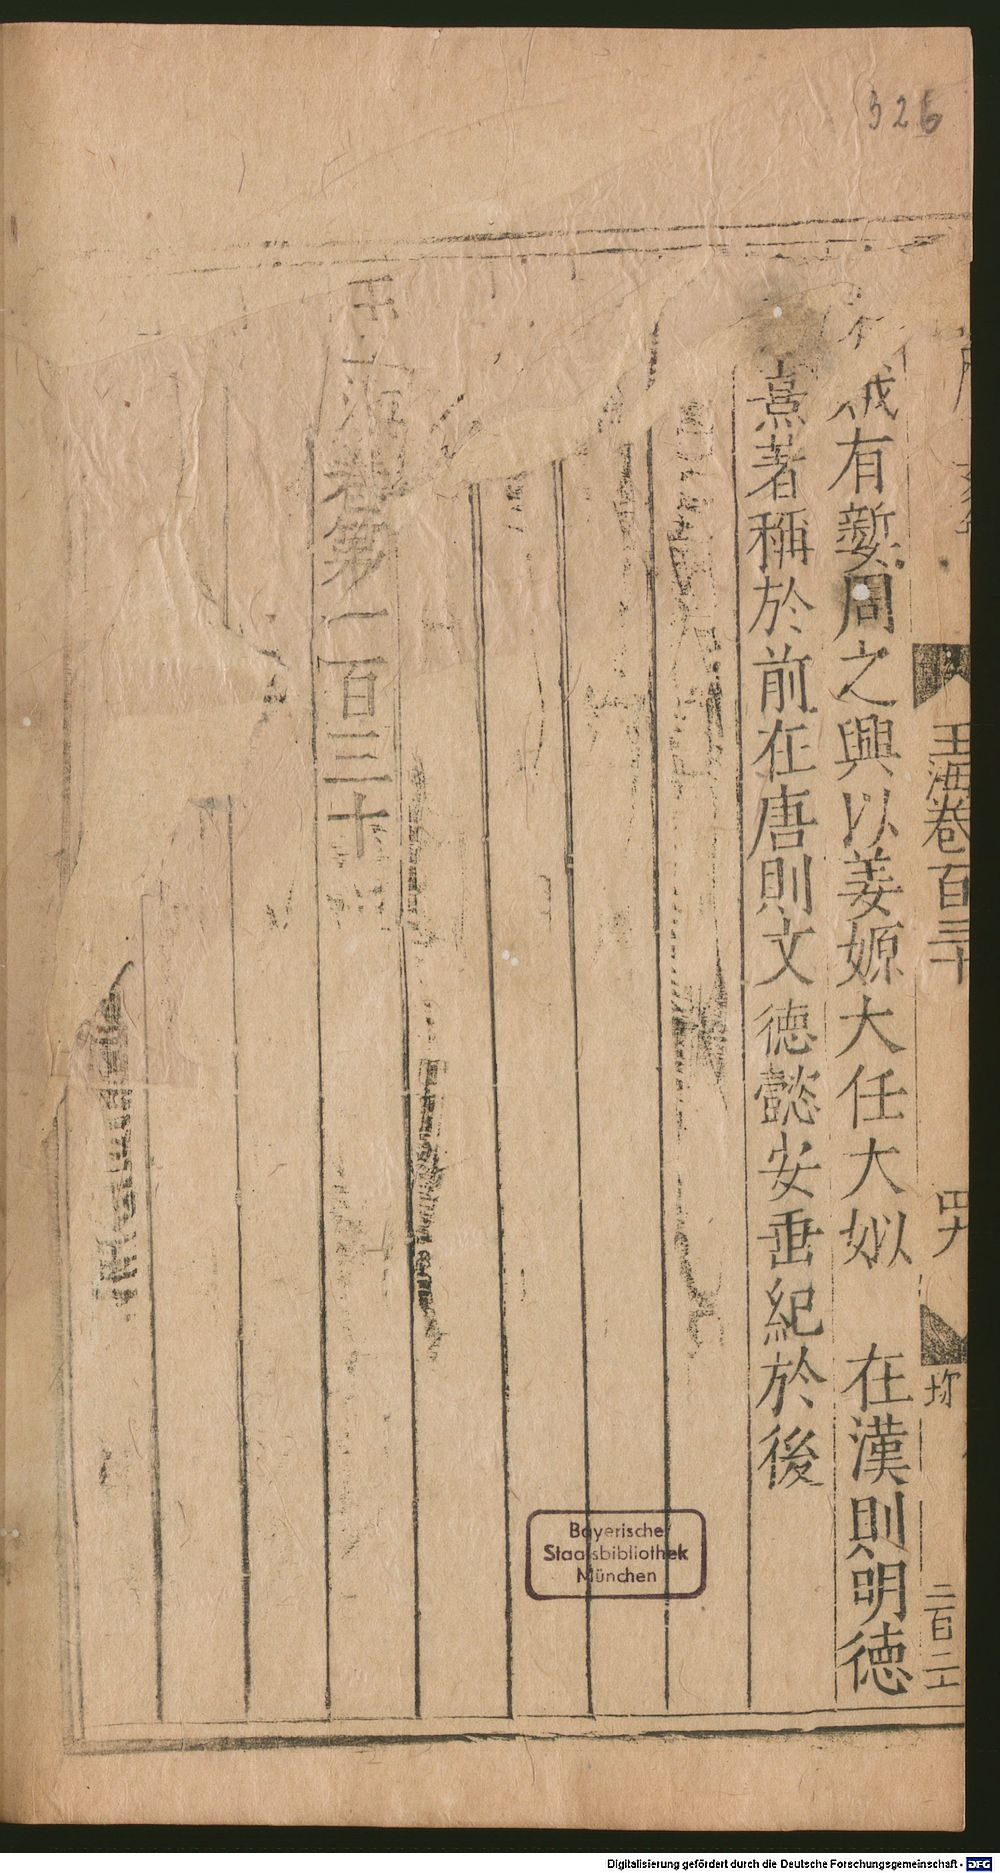 326
玉海卷百三十
四九
二百二
娀有㜪周之興以姜嫄大任大姒 在漢則明德
熹著稱於前在唐則文德懿安垂紀於後
玉海卷第一百三十
Bayerische
Staatsbibliothek
München
Digitalisierung gefördert durch die Deutsche Forschungsgemeinschaft - DFG